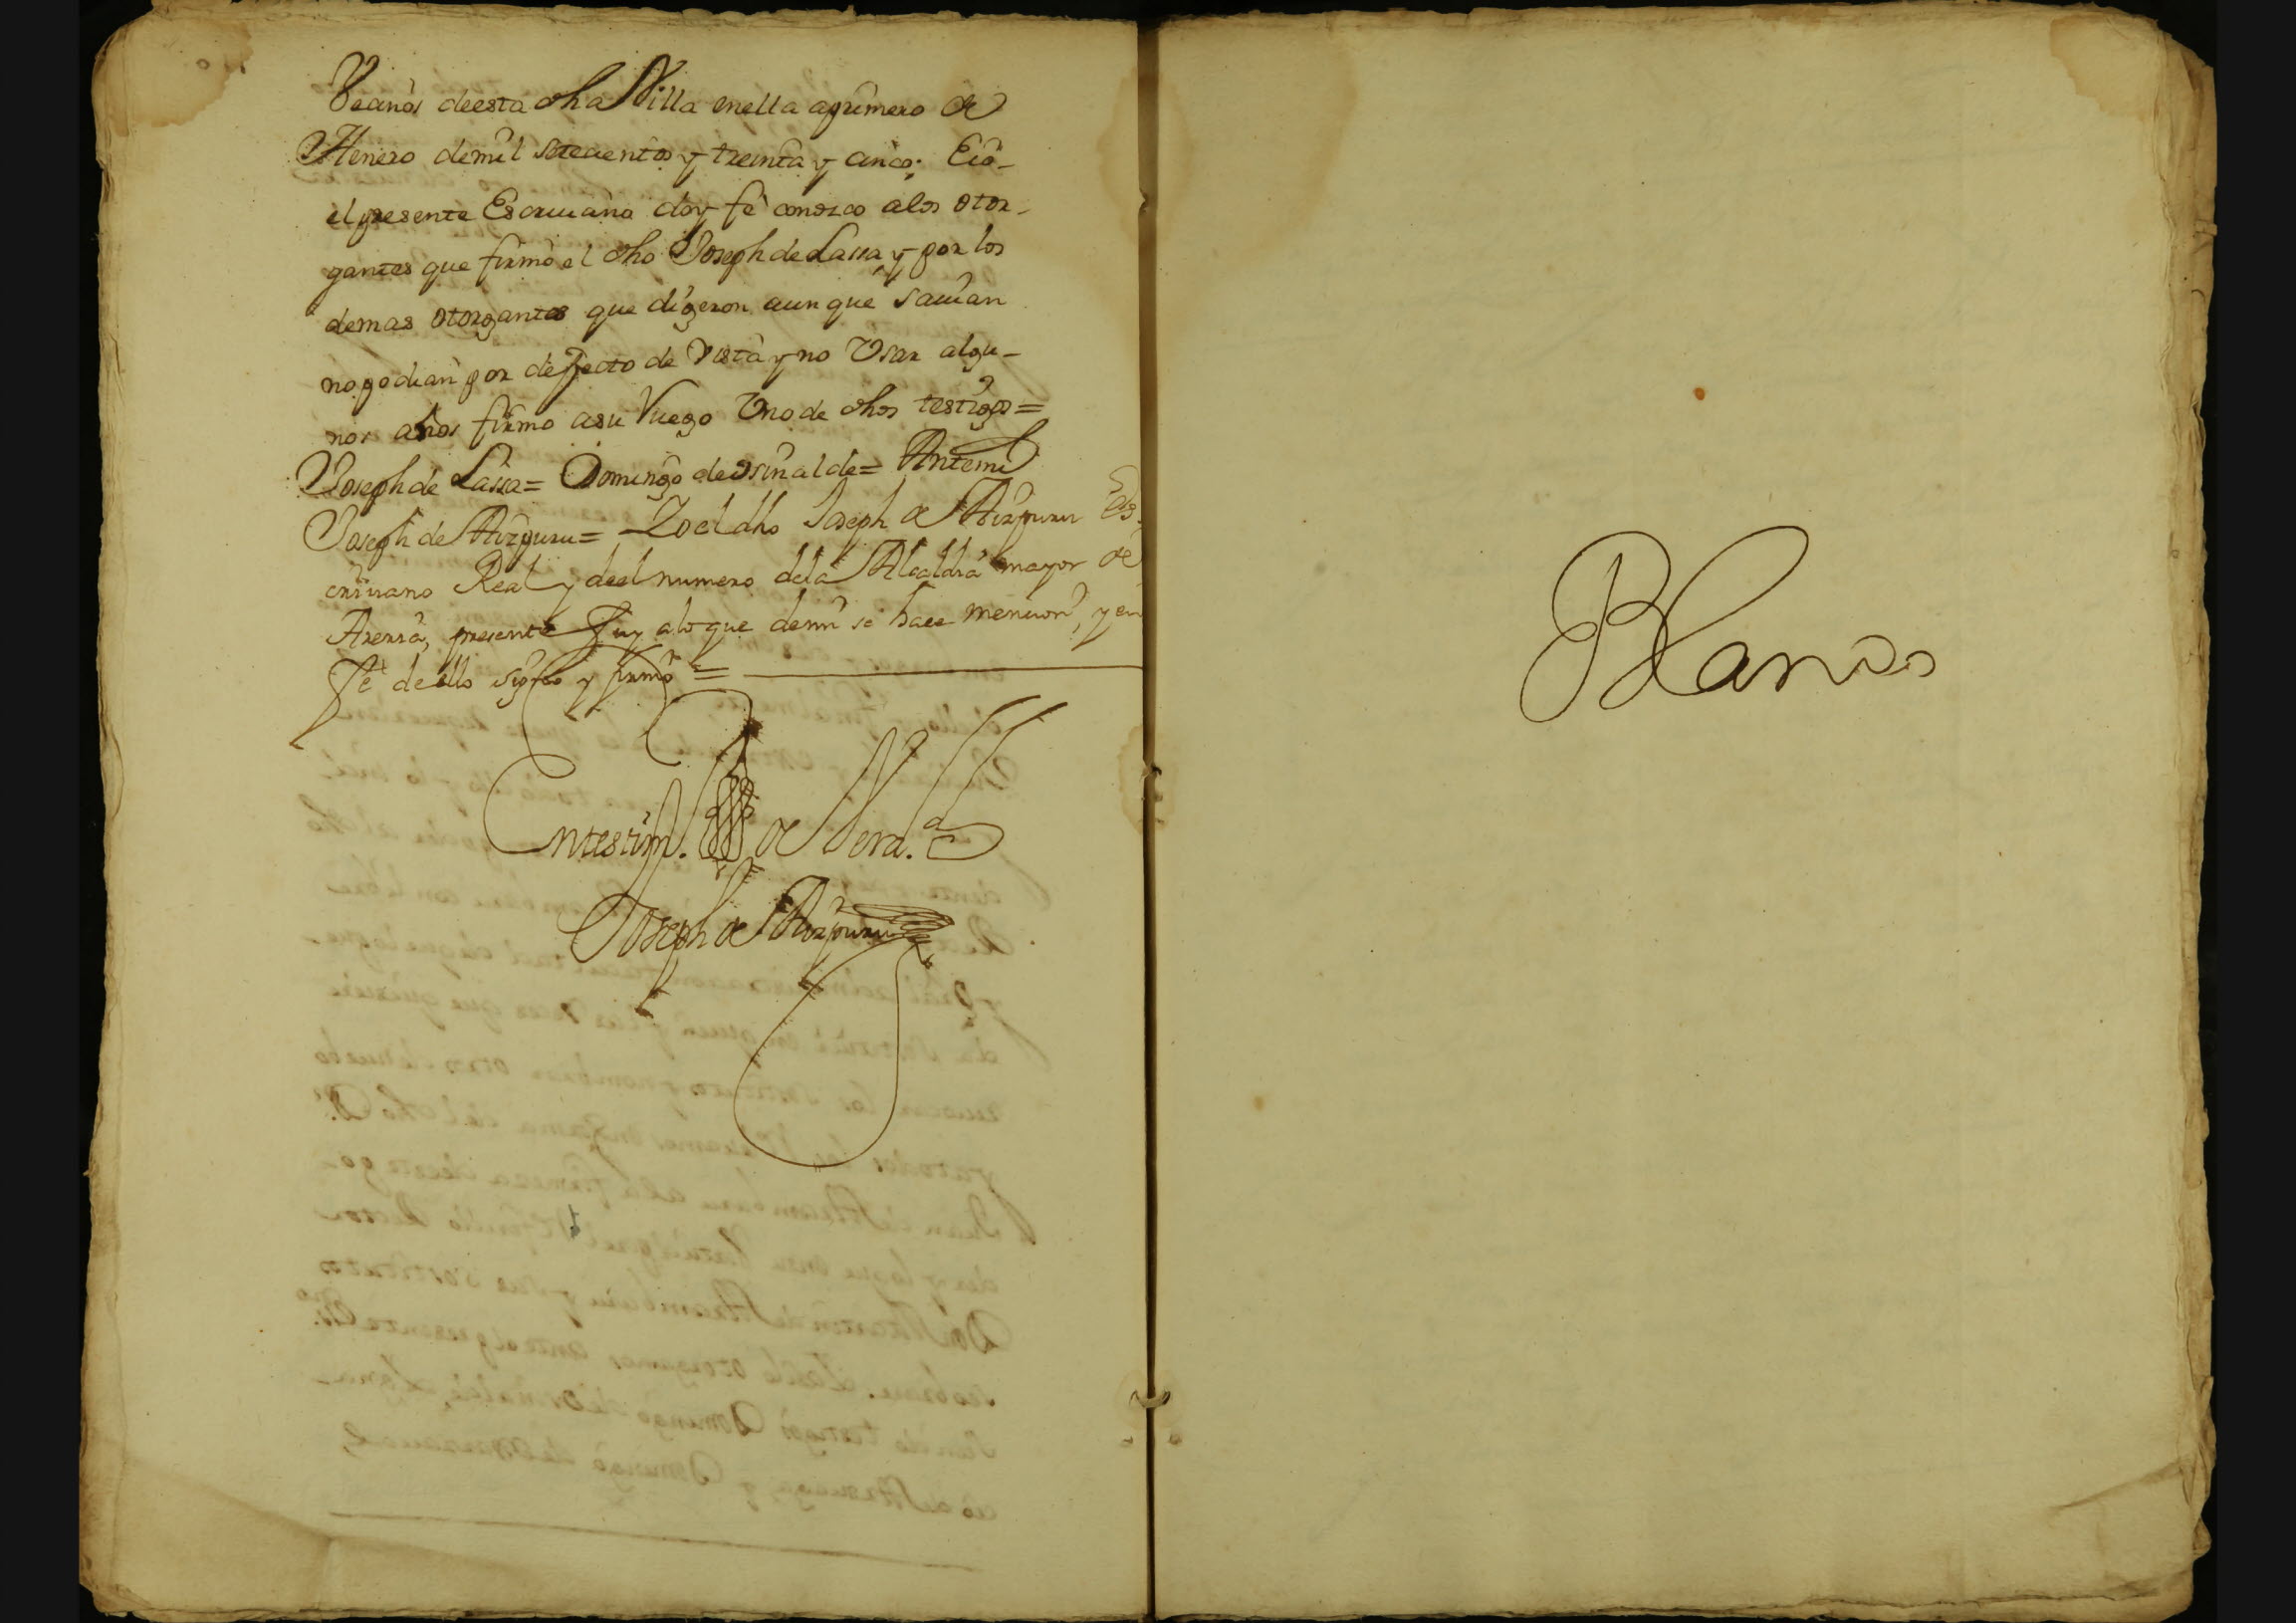 Vecinos de esta dha Villa en ella a primero de
Henero de mil setecientos y treinta y cinco; E io
el presente Escriuano doy fe conozco a los otor-
gantes que firmo el dho Joseph de Lassa, y por los
demas otorgantes que digeron aunque sauian
no podian por defecto de Vista y no Vsar algu-
nos años firmo a su Ruego Vno de dhos testigos =
Joseph de Lassa = Domingo de Osinalde = Antemi
Joseph de Aizpuru = Yo el dho Joseph de Aizpuru Es-
criuano Real y del numero de la Alcaldia mayor de
Areria, presente fuy a lo que de mi se hace mencion, y en
fe de ello signo y firmo =
En testim.º de Verd.ᵈ
Joseph de Aizpuru
Blanco